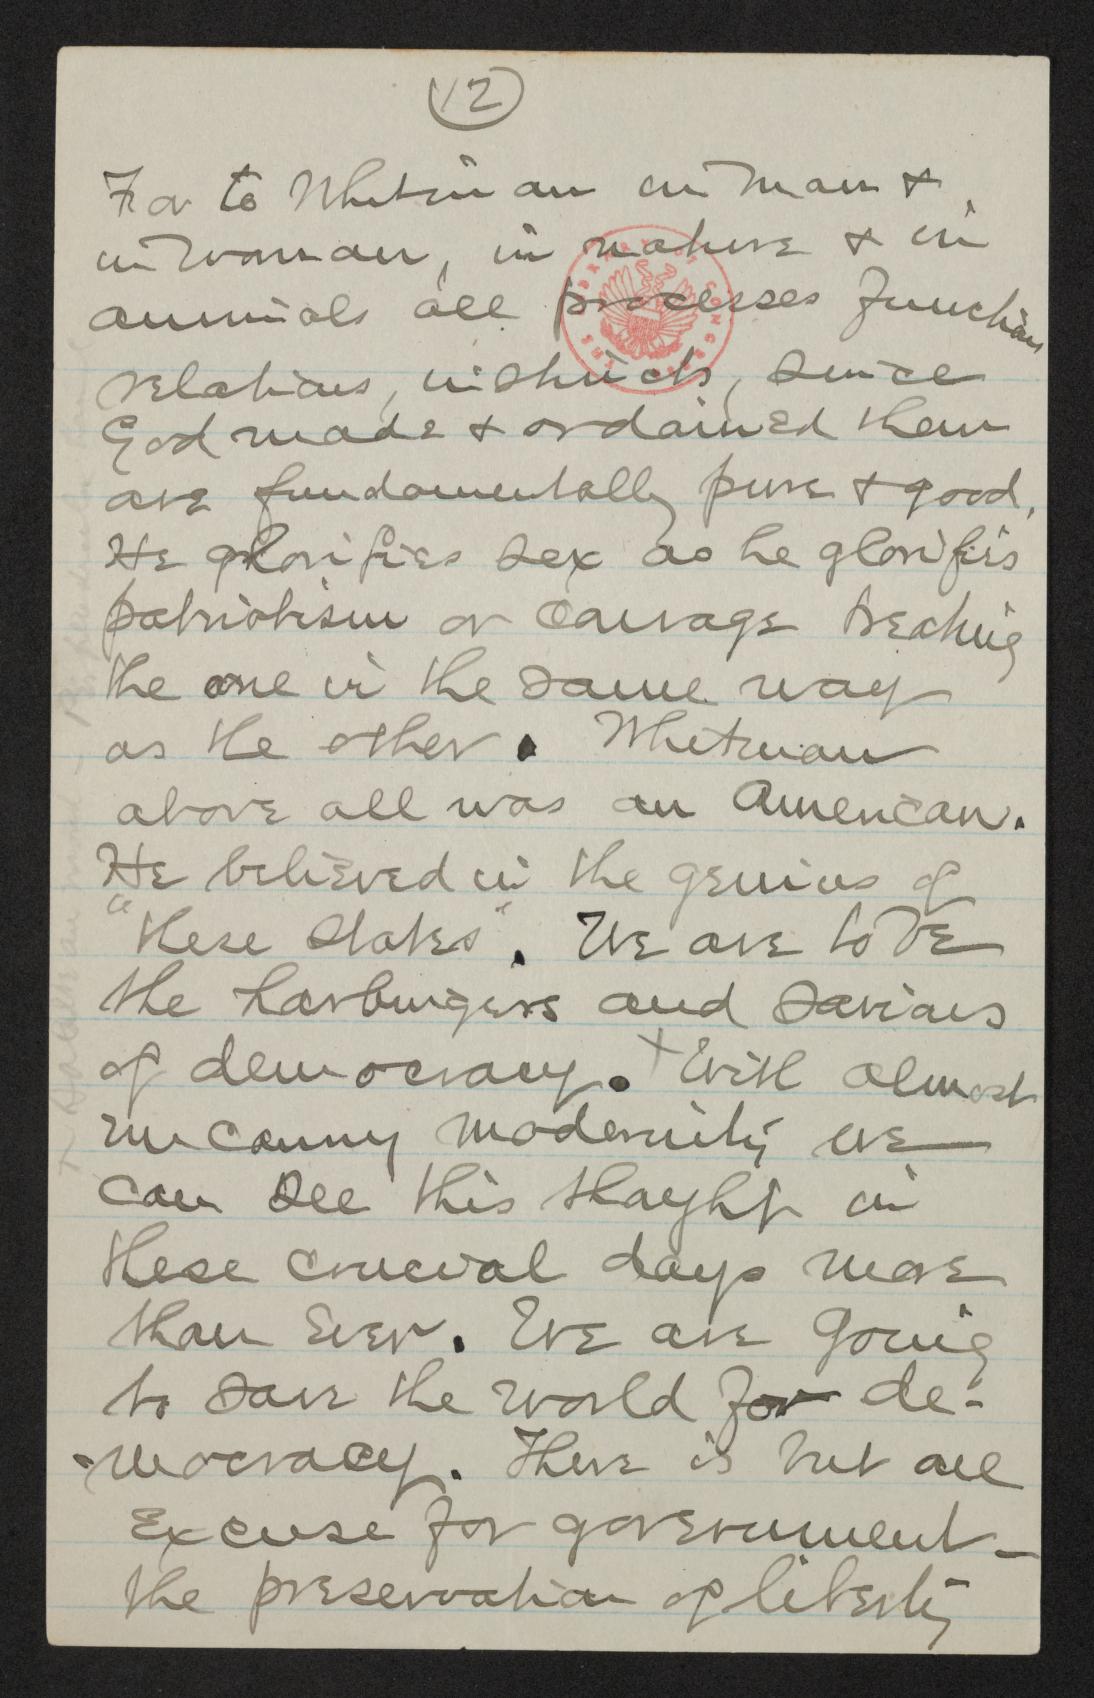 12
For to Whitman in man &
in woman, in nature & in
animals all processes function
relations, instincts, since
God made & ordained them
are fundamentally pure & good.
He glorifies sex as he glorifies
patriotism or courage treating
the one in the same way
as the other. Whitman
above all was an American.
He believed in the genius of
"these states". We are to be
the harbingers and saviors
of democracy. + With almost
uncanny modernity we
can see this thought in
these crucial days more
than ever. We are going
to save the world for de-
-mocracy. There is but one
excuse for government -
the preservation of liberty